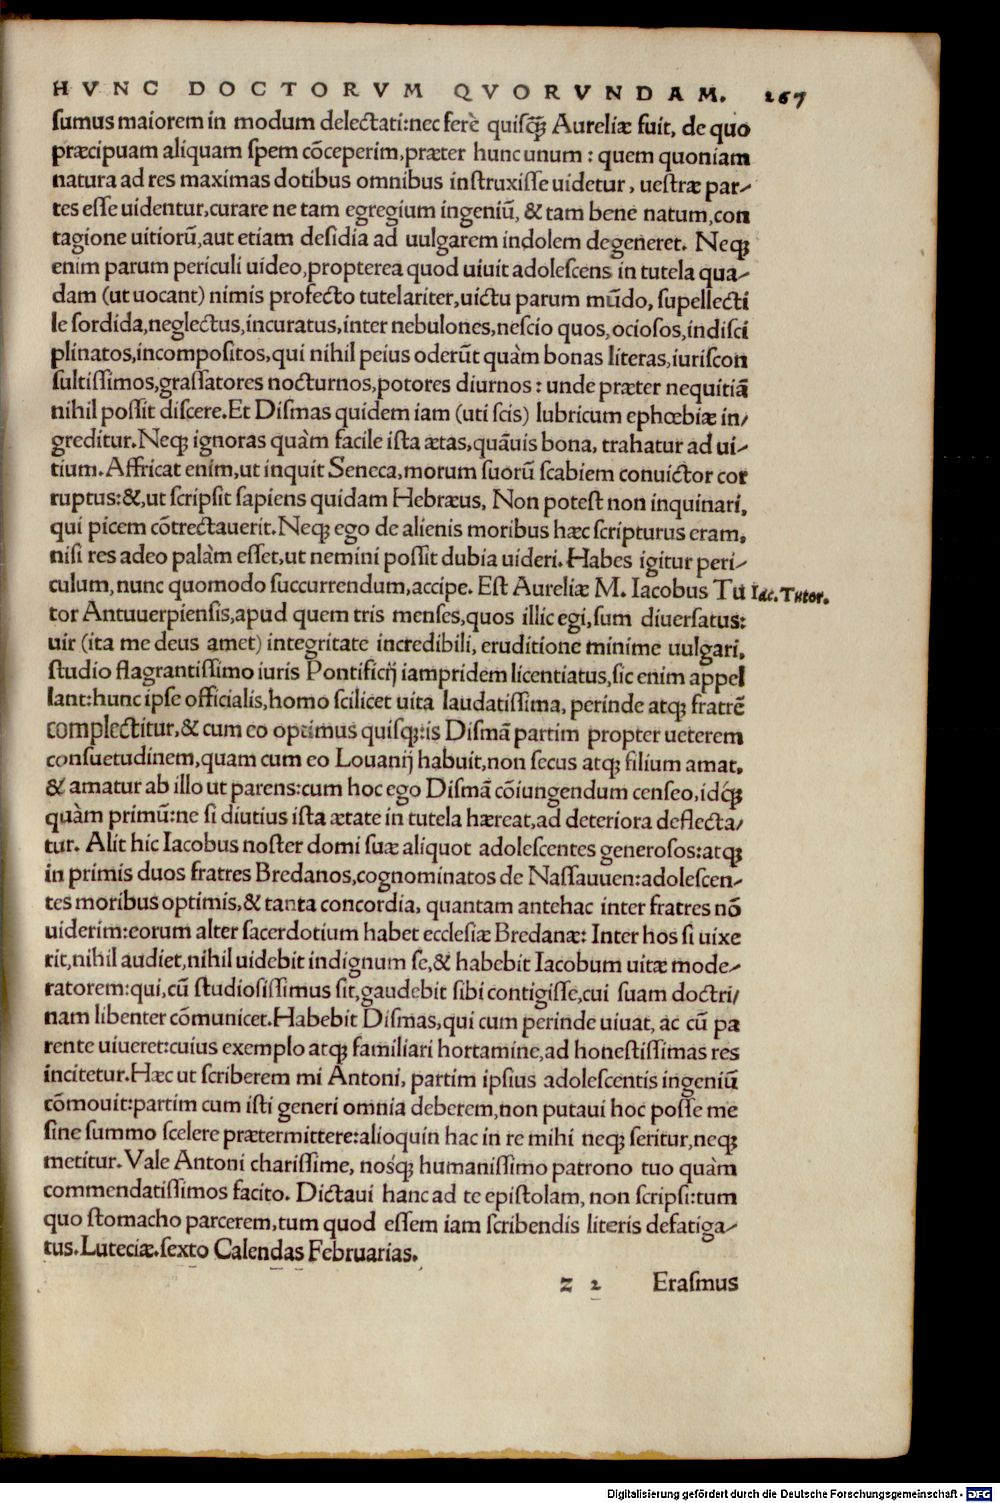 HVNC DOCTORVM QVORVNDAM. 267
ſumus maiorem in modum delectati:nec ferè quiſq̃ꝫ Aureliæ fuit, de quo
præcipuam aliquam ſpem cōceperim,præter hunc unum : quem quoniam
natura ad res maximas dotibus omnibus inſtruxiſſe uidetur, ueſtræ par-
tes eſſe uidentur,curare ne tam egregium ingeniū, & tam bene natum,con
tagione uitiorū,aut etiam deſidia ad uulgarem indolem degeneret. Neqꝫ
enim parum periculi uideo,propterea quod uiuit adoleſcens in tutela qua-
dam (ut uocant) nimis profecto tutelariter,uictu parum mūdo, ſupellecti
le ſordida,neglectus,incuratus,inter nebulones,neſcio quos,ocioſos,indiſci
plinatos,incompoſitos,qui nihil peius oderūt quàm bonas literas,iuriſcon
ſultiſſimos,graſſatores nocturnos,potores diurnos : unde præter nequitiā
nihil poſſit diſcere.Et Diſmas quidem iam (uti ſcis) lubricum ephœbiæ in/
greditur.Neqꝫ ignoras quàm facile iſta ætas,quāuis bona, trahatur ad ui-
tium.Affricat enim,ut inquit Seneca,morum ſuorū ſcabiem conuictor cor
ruptus:&,ut ſcripſit ſapiens quidam Hebræus, Non poteſt non inquinari,
qui picem cōtrectauerit.Neqꝫ ego de alienis moribus hæc ſcripturus eram,
niſi res adeo palàm eſſet,ut nemini poſſit dubia uideri. Habes igitur peri-
culum,nunc quomodo ſuccurrendum,accipe. Eſt Aureliæ M. Iacobus Tu Iac. Tutor.
tor Antuuerpienſis,apud quem tris menſes,quos illic egi,ſum diuerſatus:
uir (ita me deus amet) integritate incredibili, eruditione minime uulgari,
ſtudio flagrantiſſimo iuris Pontificij iampridem licentiatus,ſic enim appel
lant:hunc ipſe officialis,homo ſcilicet uita laudatiſſima, perinde atqꝫ fratrē
complectitur,& cum eo optimus quiſqꝫ:is Diſmā partim propter ueterem
conſuetudinem,quam cum eo Louanij habuit,non ſecus atqꝫ filium amat,
& amatur ab illo ut parens:cum hoc ego Diſmā cōiungendum cenſeo,idq́ꝫ
quàm primū:ne ſi diutius iſta ætate in tutela hæreat,ad deteriora deflecta/
tur. Alit hic Iacobus noſter domi ſuæ aliquot adoleſcentes generoſos:atqꝫ
in primis duos fratres Bredanos,cognominatos de Naſſauuen:adoleſcen-
tes moribus optimis,& tanta concordia, quantam antehac inter fratres nō
uiderim:eorum alter ſacerdotium habet eccleſiæ Bredanæ: Inter hos ſi uixe
rit,nihil audiet,nihil uidebit indignum ſe,& habebit Iacobum uitæ mode-
ratorem:qui,cū ſtudioſiſſimus ſit,gaudebit ſibi contigiſſe,cui ſuam doctri/
nam libenter cōmunicet.Habebit Diſmas,qui cum perinde uiuat, ac cū pa
rente uiueret:cuius exemplo atqꝫ familiari hortamine,ad honeſtiſſimas res
incitetur.Hæc ut ſcriberem mi Antoni, partim ipſius adoleſcentis ingeniū
cōmouit:partim cum iſti generi omnia deberem,non putaui hoc poſſe me
ſine ſummo ſcelere prætermittere:alioquin hac in re mihi neqꝫ ſeritur,neqꝫ
metitur. Vale Antoni chariſſime, noſq́ꝫ humaniſſimo patrono tuo quàm
commendatiſſimos facito. Dictaui hanc ad te epiſtolam, non ſcripſi:tum
quo ſtomacho parcerem,tum quod eſſem iam ſcribendis literis defatiga-
tus.Luteciæ.ſexto Calendas Februarias.
z 2 Eraſmus
Digitalisierung gefördert durch die Deutsche Forschungsgemeinschaft - DFG